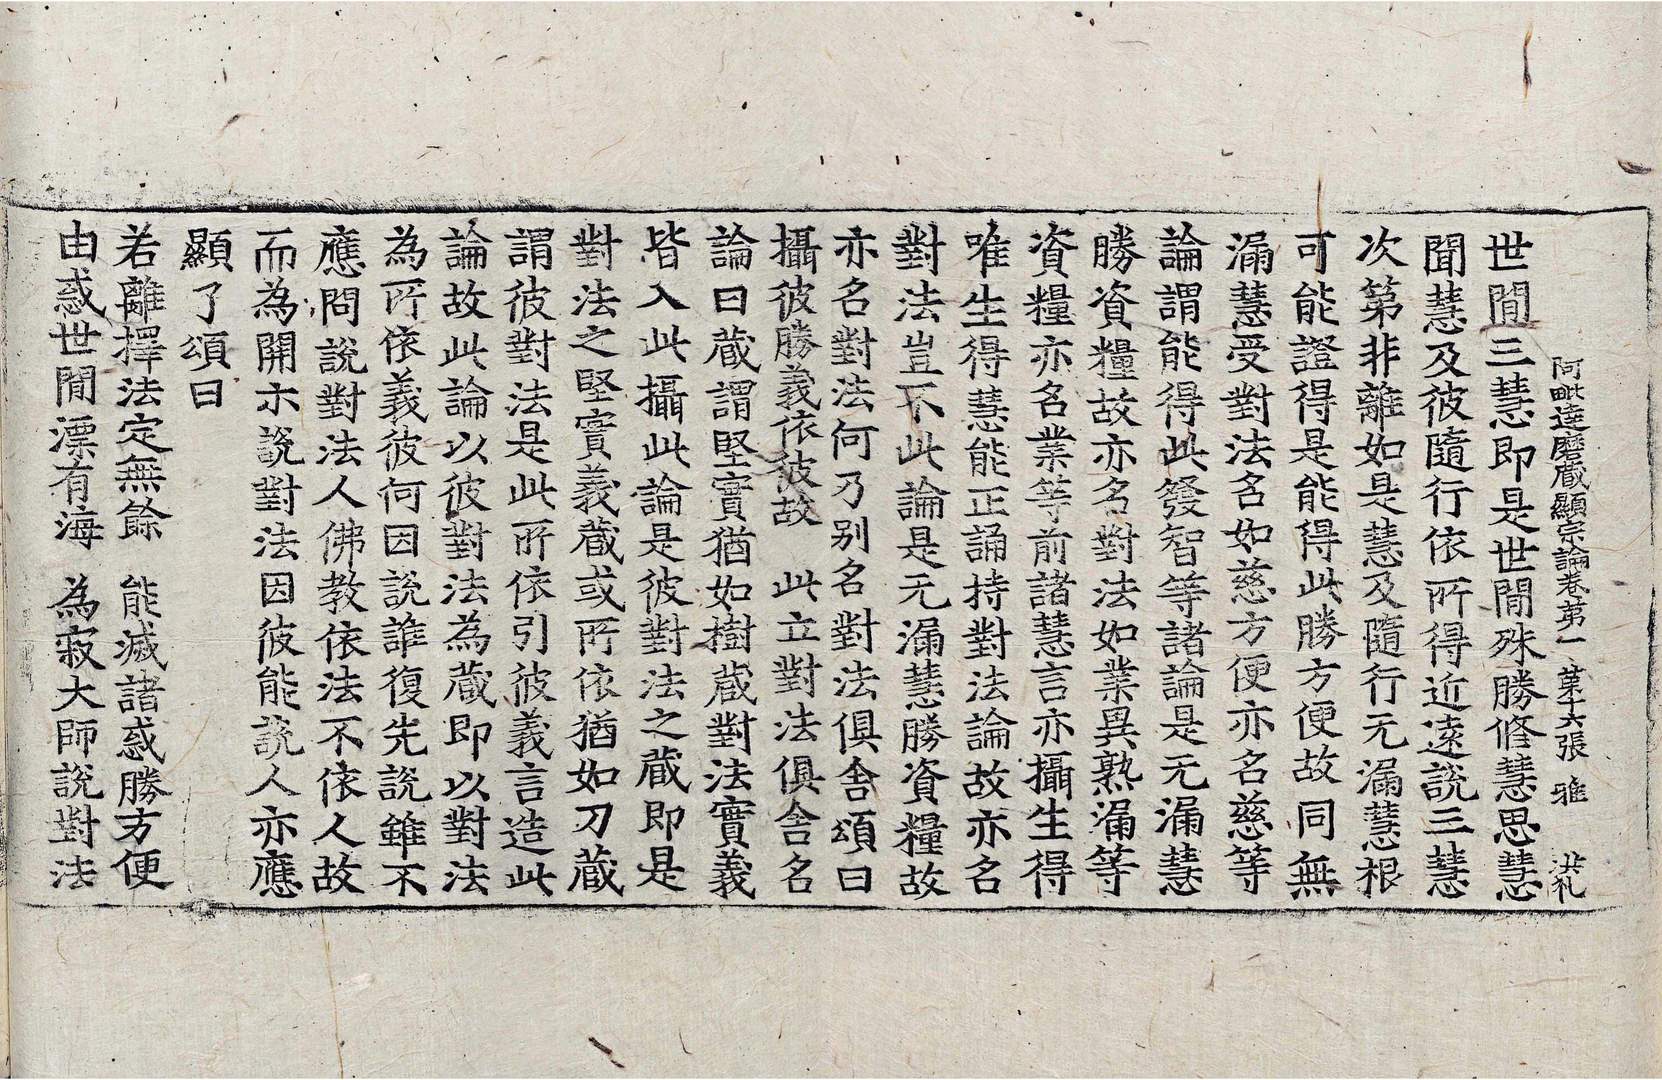 阿毗達磨藏顯宗論卷第一 第十六張 雅 洪礼
世間三慧即是世間殊勝修慧思慧
聞慧及彼隨行依所得近遠說三慧
次第非離如是慧及隨行无漏慧根
可能證得是能得此勝方便故同無
漏慧受對法名如慈方便亦名慈等
論謂能得此發智等諸論是无漏慧
勝資糧故亦名對法如業異熟漏等
資糧亦名業等前諸慧言亦攝生得
唯生得慧能正誦持對法論故亦名
對法豈不此論是无漏慧勝資糧故
亦名對法何乃別名對法俱舍頌曰
攝彼勝義依彼故 此立對法俱舍名
論曰藏謂堅實猶如樹藏對法實義
皆入此攝此論是彼對法之藏即是
對法之堅實義藏或所依猶如刀藏
謂彼對法是此所依引彼義言造此
論故此論以彼對法為藏即以對法
為所依義彼何因說誰復先說雖不
應問說對法人佛教依法不依人故
而為開示說對法因彼能說人亦應
顯了頌曰
若離擇法定無餘 能滅諸惑勝方便
由惑世間漂有海 為寂大師說對法